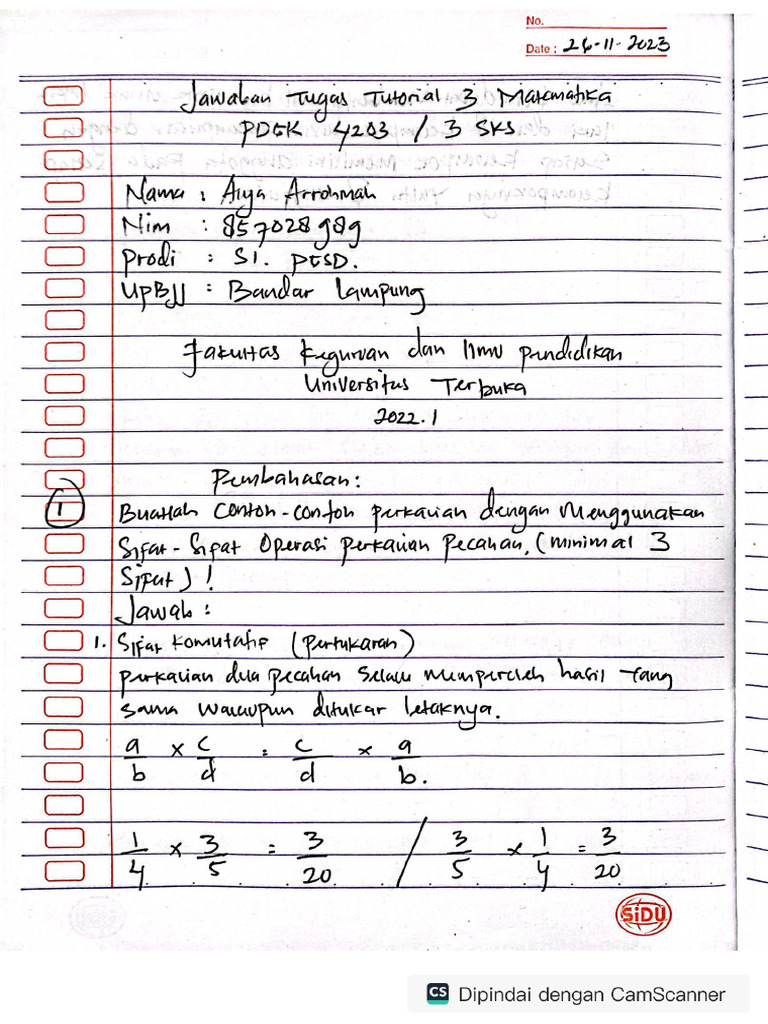 No.
Date : 26-11-2023
Jawaban Tugas Tutorial 3 Matematika
PDGK 4203 / 3 SKS
Nama : Aiya Arrohmah
Nim : 857028989
Prodi : S1. PGSD.
UPBJJ : Bandar Lampung
Fakultas Keguruan dan Ilmu Pendidikan
Universitas Terbuka
2022.1
Pembahasan:
1 Buatlah Contoh-contoh perkalian dengan Menggunakan
Sifat-Sifat Operasi perkalian Pecahan, (minimal 3
Sifat) !
Jawab :
1. Sifat Komutatif (Pertukaran)
perkalian dua pecahan Selalu Memperoleh hasil Yang
sama walaupun ditukar letaknya.
a/b x c/d = c/d x a/b.
1/4 x 3/5 = 3/20 / 3/5 x 1/4 = 3/20
SiDU
CS Dipindai dengan CamScanner